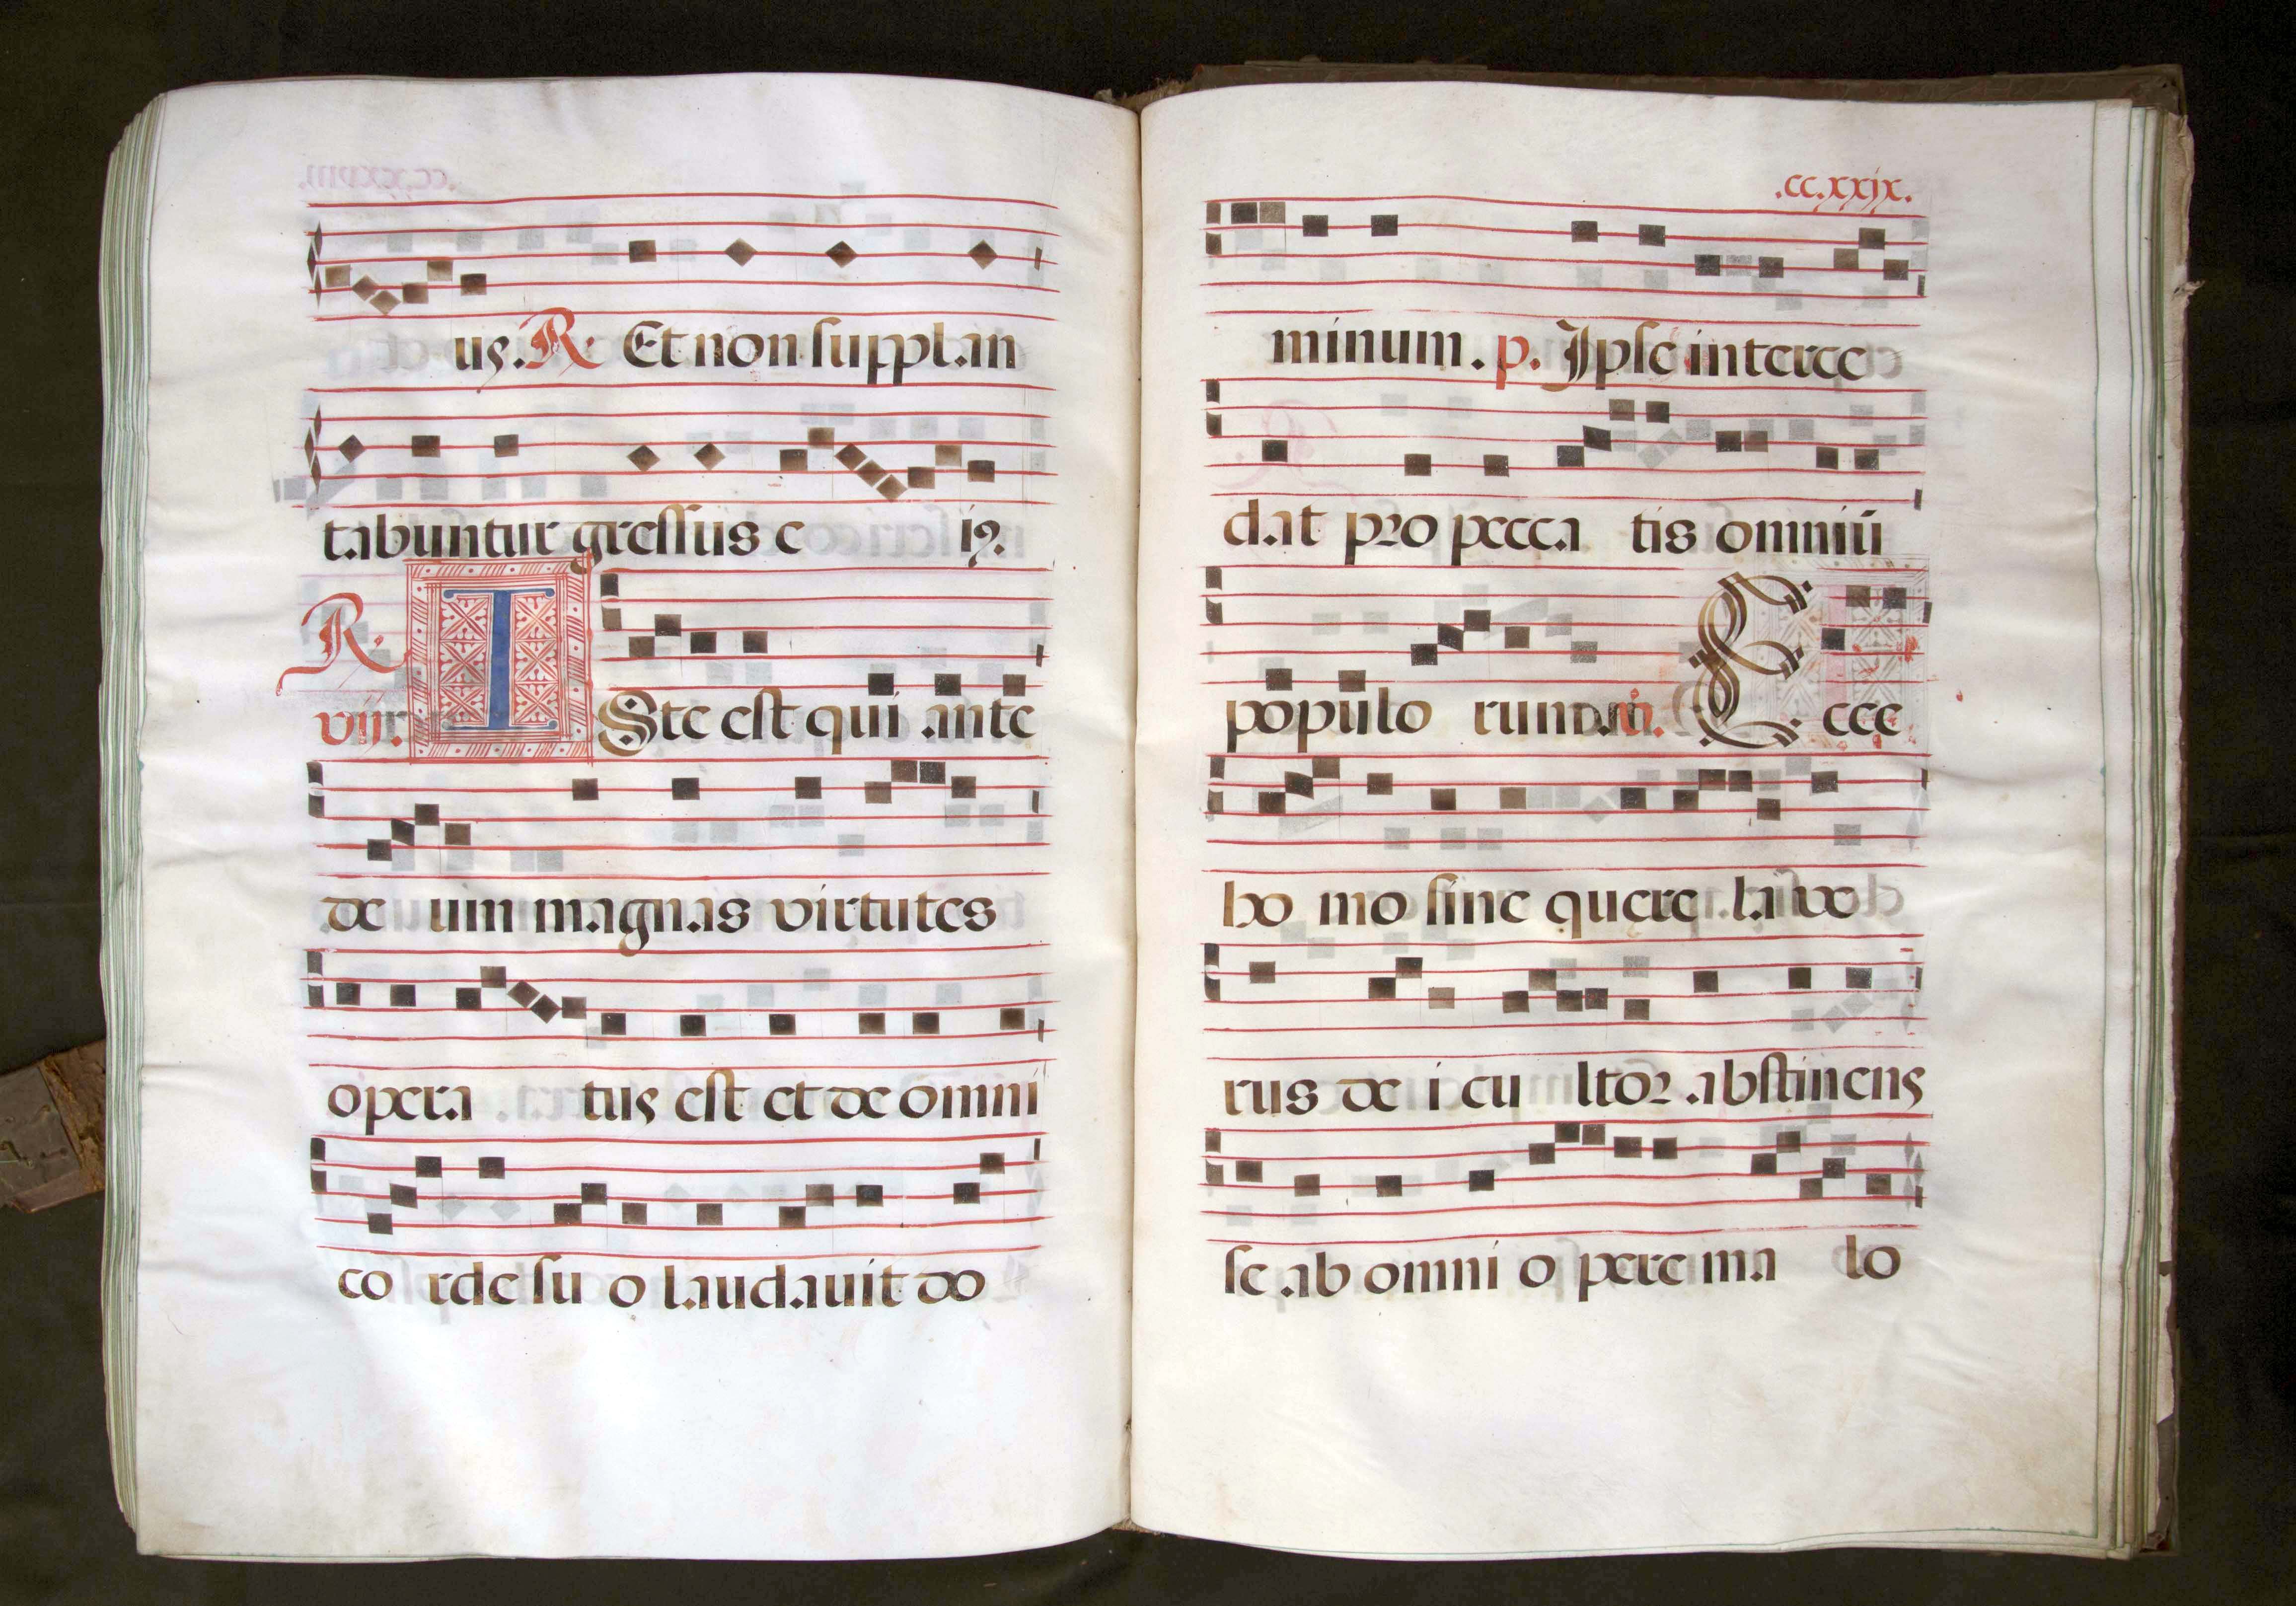 us. R. Et non supplan
tabuntur gressus e iꝰ.
R. I
viij. Ste est qui ante
de um magnas virtutes
opera tus est et de omni
co rde su o laudauit do
.cc.xxix.
minum. p. Ipse interce
dat pro pecca tis omniū
populo rum. v. Ecce
ho mo sine quere la ve
rus de i cu ltor abstinens
se ab omni o pere ma lo